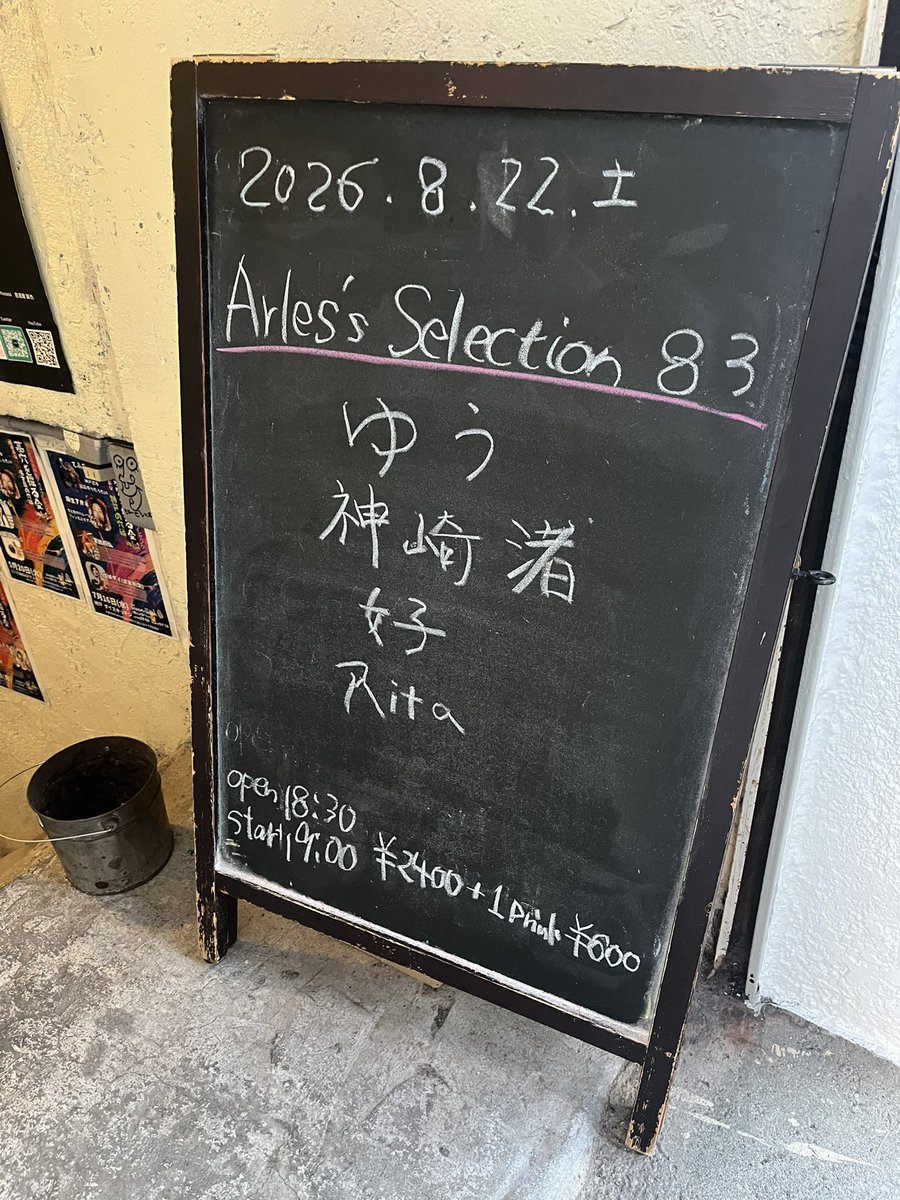 2026.8.22.土
Arles's Selection 83
ゆう
神崎渚
好
Rita
open 18:30
start 19:00 ¥2400+1Drink ¥600
YouTube
7月16日